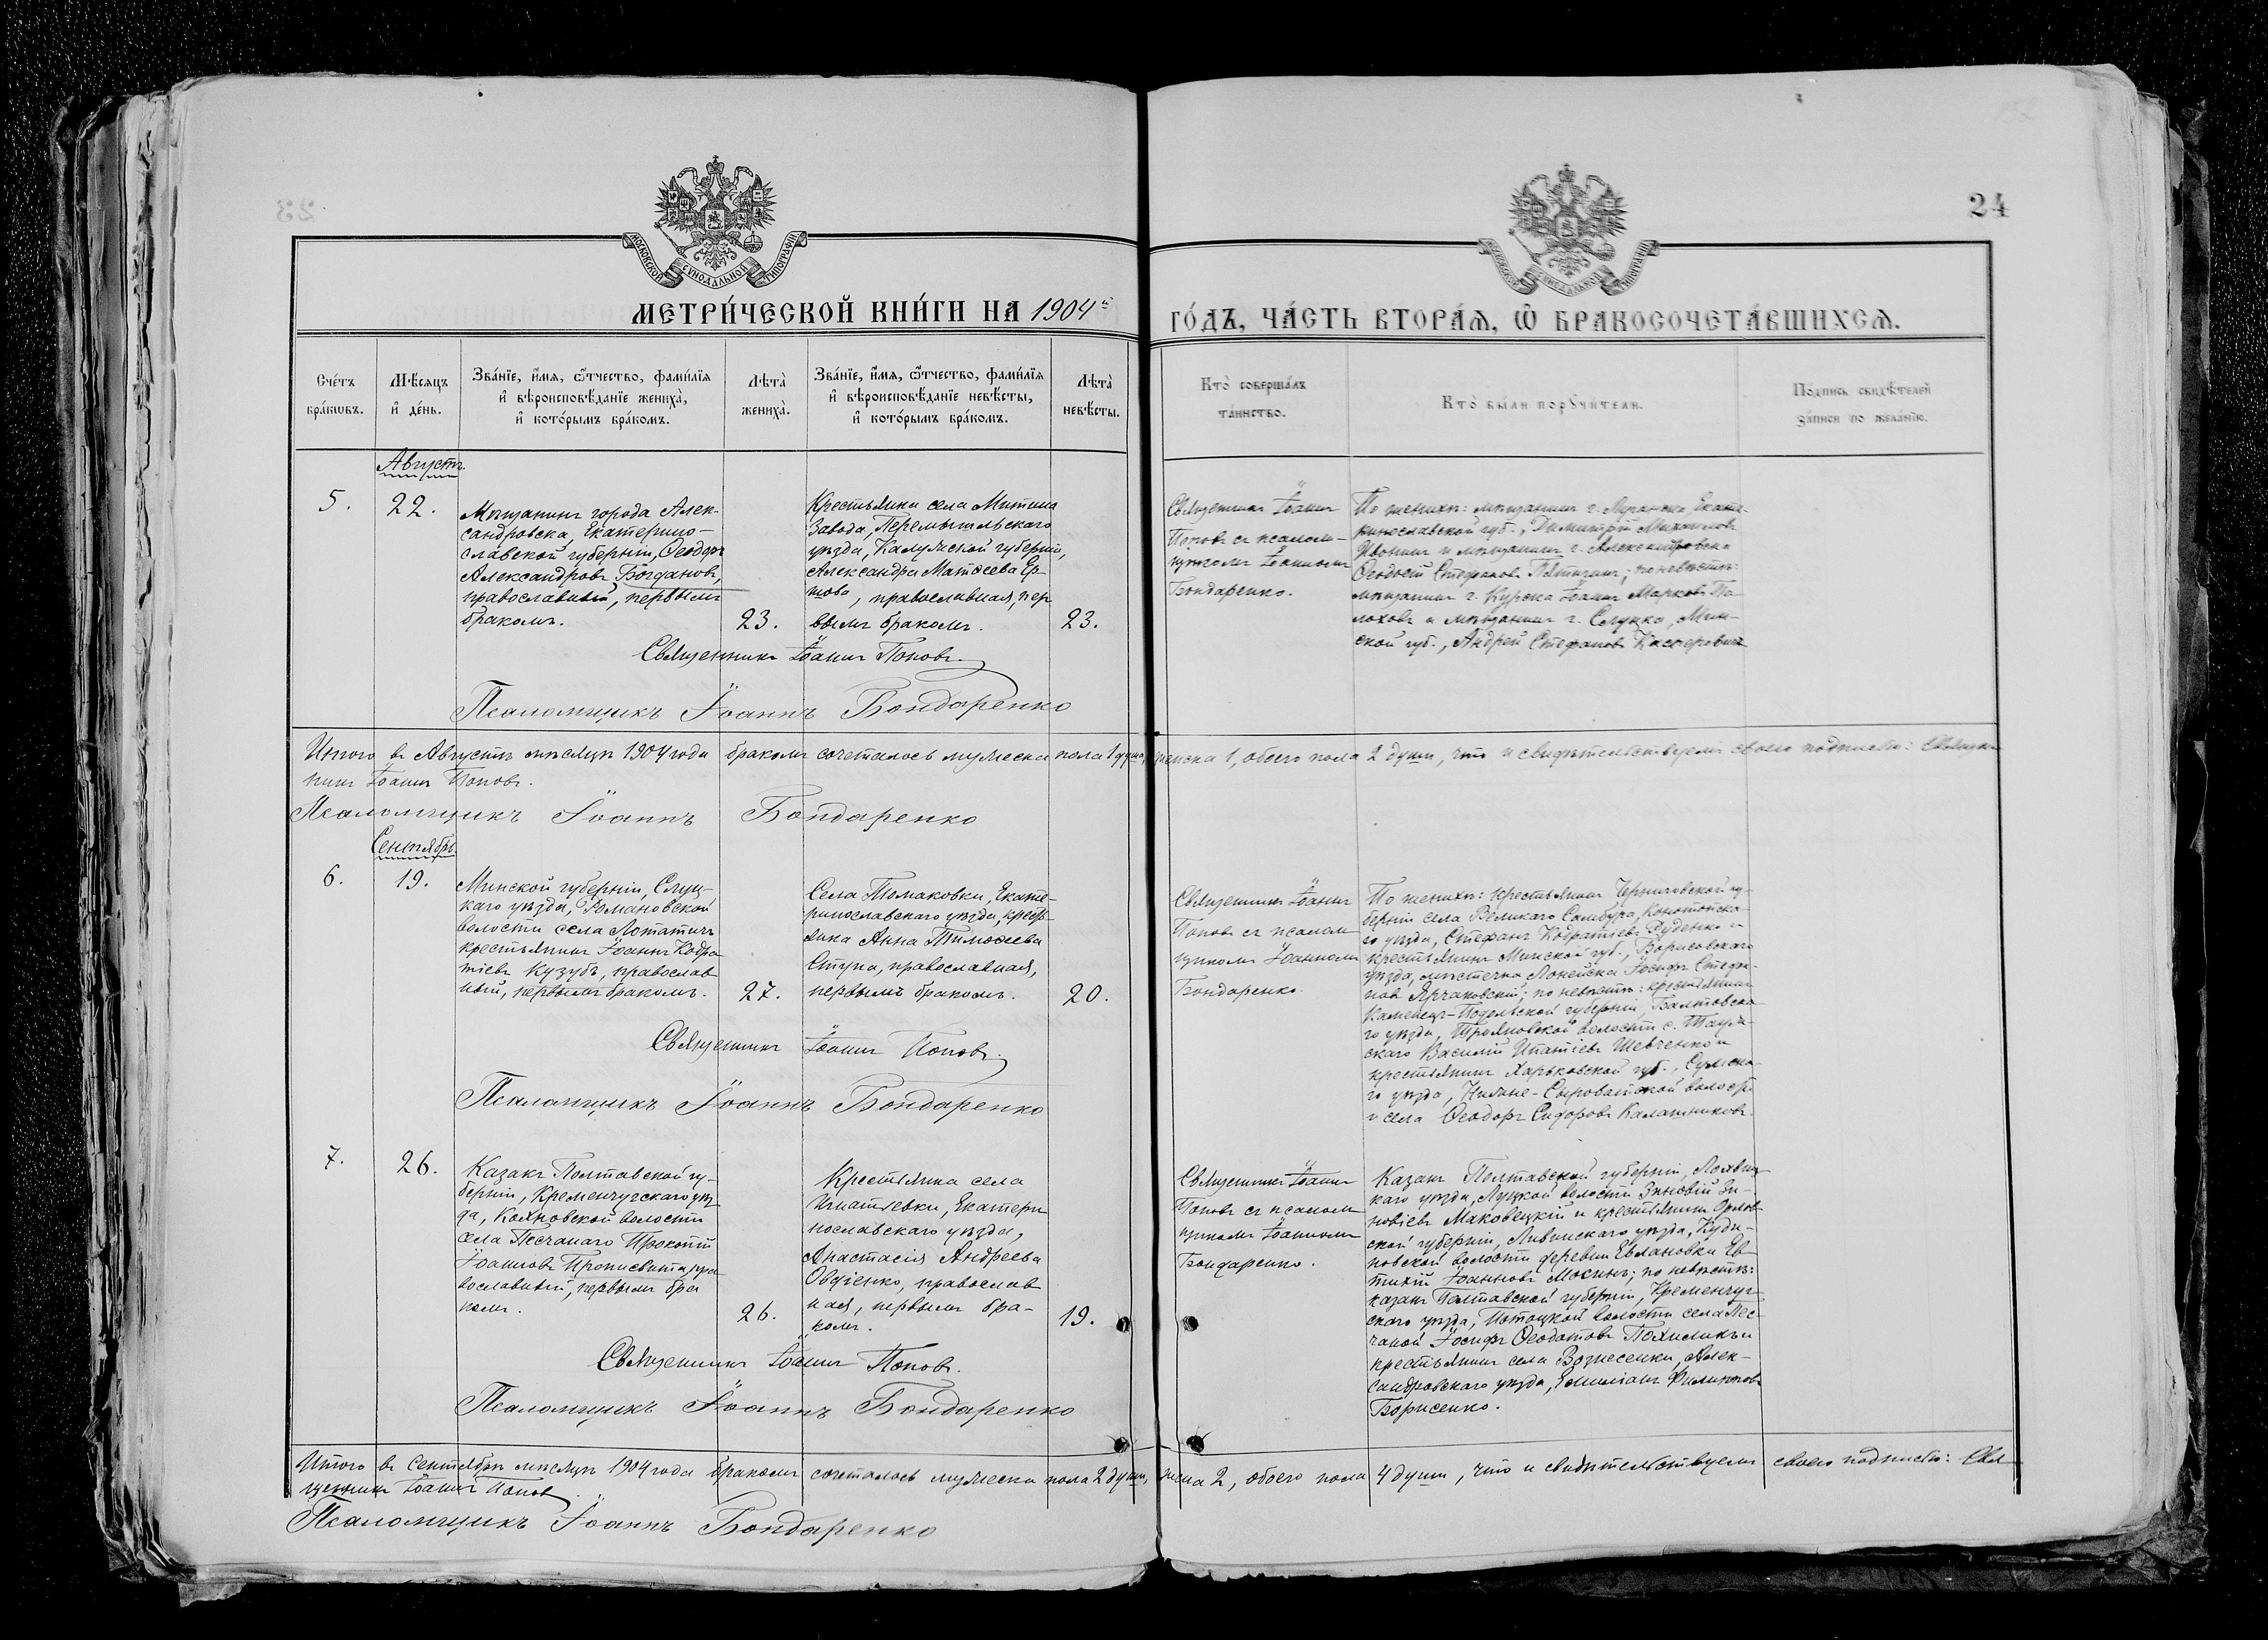 24
МОСКОВСКОЙ СѴНОДАЛЬНОЙ ТИПОГРАФІИ
МЕТРИ́ЧЕСКОЙ КНИ́ГИ НА 1904й
ГО́ДЪ, ЧА́СТЬ ВТОРА́Я, Ѿ БРАКОСОЧЕТА́ВШИХСЯ.
Сче́тъ бра́кѡвъ.
Мѣ́сяцъ и҆ де́нь.
Зва́нїе, и҆́мя, ѻ҆́тчество, фами́лїя
и҆ вѣроисповѣ́данїе жениха̀,
и҆ кото́рымъ бра́комъ.
Лѣта̀ жениха̀.
Зва́нїе, и҆́мя, ѻ҆́тчество, фами́лїя
и҆ вѣроисповѣ́данїе невѣ́сты,
и҆ кото́рымъ бра́комъ.
Лѣта̀ невѣ́сты.
Кто̀ соверша́лъ та́инство.
Кто̀ бы́ли порꙋчи́тели.
По́дпись свидѣ́телей за́писи по жела́нїю.
Августъ.
5.
22.
Мѣщанинъ города Алек-
сандровска, Екатерино-
славской губерніи, Ѳеодоръ
Александровъ Богдановъ,
православный, первымъ
бракомъ.
23.
Крестьянка села Митина
Завода, Перемышльскаго
уѣзда, Калужской губерніи,
Александра Матѳеева Ер-
това, православная, пер
вымъ бракомъ.
23.
Священникъ Іоаннъ
Поповъ съ псалом-
щикомъ Іоанномъ
Бондаренко.
По женихѣ: мѣщанинъ г. Луганска, Екате-
ринославской губ., Димитрій Михаиловъ
Ивонинъ и мѣщанинъ г. Александровска
Ѳеодосій Стефановъ Пятигинъ; по невѣстѣ:
мѣщанинъ г. Курска Іоаннъ Марковъ Па-
лоховъ и мѣщанинъ г. Слуцка, Мин-
ской губ., Андрей Стефановъ Касперовичъ
Священникъ Іоаннъ Поповъ.
Псаломщикъ Іоаннъ Бондаренко
Итого въ Августѣ мѣсяцѣ 1904 года бракомъ сочеталось мужеска пола 1 душа, женска 1, обоего пола 2 души, что и свидѣтельствуемъ своею подписью: Священ
никъ Іоаннъ Поповъ.
Псаломщикъ Іоаннъ Бондаренко
Сентябрь.
6.
19.
Минской губерніи, Слуц-
каго уѣзда, Романовской
волости села Лотатичъ
крестьянинъ Іоаннъ Кодра
тіевъ Кузубъ, православ
ный, первымъ бракомъ.
27.
Села Томаковки, Екате-
ринославскаго уѣзда, кресть-
янка Анна Тимоѳеева
Ступа, православная,
первымъ бракомъ.
20.
Священникъ Іоаннъ
Поповъ съ псалом
щикомъ Іоанномъ
Бондаренко.
По женихѣ: крестьянинъ Черниговской гу-
берніи села Великаго Самбура, Конотопска-
го уѣзда, Стефанъ Кодратіевъ Руденко и
крестьянинъ Минской губ., Борисовскаго
уѣзда, мѣстечка Логейска Іосифъ Стефа-
новъ Ярчаковскій; по невѣстѣ: крестьянинъ
Каменецъ-Подольской губерніи, Балтовска-
го уѣзда, Трояновской волости с.
скаго Василій Игнатіевъ Шевченко и
крестьянинъ Харьковской губ., Сумска-
го уѣзда, Нижне-Сыроватской волости
и села Ѳеодоръ Сидоровъ Калашниковъ.
Священникъ Іоаннъ Поповъ.
Псаломщикъ Іоаннъ Бондаренко
7.
26.
Казакъ Полтавской гу-
берніи, Кременчугскаго уѣз
да, Кохновской волости
села Песчанаго Прокопій
Іоанновъ Прописвита, пра
вославный, первымъ бра
комъ.
26.
Крестьянка села
Игнатьевки, Екатери
нославскаго уѣзда,
Анастасія Андреева
Овдіенко, православ
ная, первымъ бра-
комъ.
19.
Священникъ Іоаннъ
Поповъ съ псалом
щикомъ Іоанномъ
Бондаренко.
Казакъ Полтавской губерніи, Лохвиц-
каго уѣзда, Луцкой волости Зиновій Зи-
новіевъ Маковецкій и крестьянинъ Орлов-
ской губерніи, Ливенскаго уѣзда, Куди-
новской волости деревни Евлановки Ев
тихій Іоанновъ Мосинъ; по невѣстѣ:
казакъ Полтавской губерніи, Кременчуг-
скаго уѣзда, Потоцкой волости села Пес-
чаной Іосифъ Ѳеодотовъ Похиликъ и
крестьянинъ села Вознесенки, Алек-
сандровскаго уѣзда, Емиліанъ Филипповъ
Борисенко.
Священникъ Іоаннъ Поповъ.
Псаломщикъ Іоаннъ Бондаренко
Итого въ Сентябрѣ мѣсяцѣ 1904 года бракомъ сочеталось мужеска пола 2 души, женска 2, обоего пола 4 души, что и свидѣтельствуемъ своею подписью: Свя-
щенникъ Іоаннъ Поповъ.
Псаломщикъ Іоаннъ Бондаренко